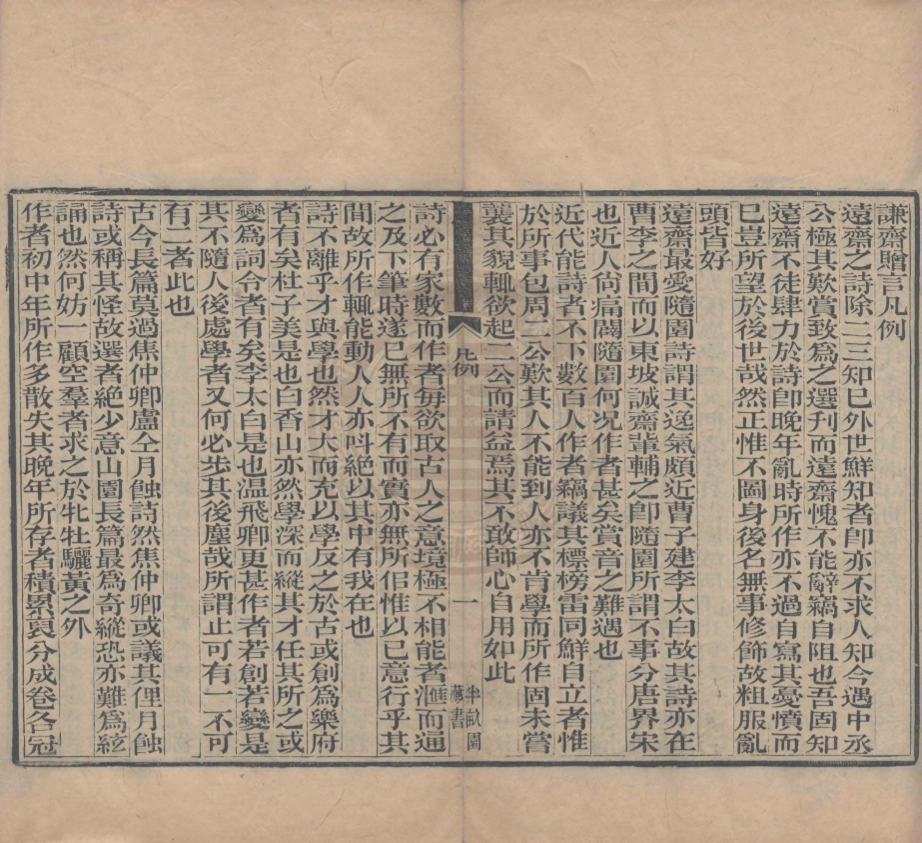 謙齋贈言凡例
遠齋之詩除二三知已外世鮮知者卽亦不求人知今遇中丞
公極其歎賞致爲之選刊而遠齋愧不能辭竊自阻也吾固知
遠齋不徒肆力於詩卽晚年亂時所作亦不過自寫其憂憤而
巳豈所望於後世哉然正惟不圖身後名無事修飾故粗服亂
頭皆好
遠齋最愛隨園詩謂其逸氣頗近曹子建李太白故其詩亦在
曹李之間而以東坡誠齋輩輔之卽隨園所謂不事分唐界宋
也近人尙痛闢隨園何况作者甚矣賞音之難遇也
近代能詩者不下數百人作者竊議其標榜雷同鮮自立者惟
於所事包周二公歎其人不能到人亦不肯學而所作固未嘗
襲其貌輒欲起二公而請益焉其不敢師心自用如此
凡例
一
半畝園
藏書
詩必有家數而作者每欲取古人之意境極不相能者滙而通
之及下筆時遂已無所不有而實亦無所佀惟以已意行乎其
間故所作輒能動人人亦呌絕以其中有我在也
詩不離乎才與學也然才大而充以學反之於古或創爲樂府
者有矣杜子美是也白香山亦然學深而縱其才任其所之或
變爲詞令者有矣李太白是也温飛卿更甚作者若創若變是
其不隨人後處學者又何必步其後塵哉所謂止可有一不可
有二者此也
古今長篇莫過焦仲卿盧仝月蝕詩然焦仲卿或議其俚月蝕
詩或稱其怪故選者絕少意山園長篇最爲奇縱恐亦難爲絃
誦也然何妨一顧空羣者求之於牝牡驪黃之外
作者初中年所作多散失其晚年所存者積累裒分成卷各冠